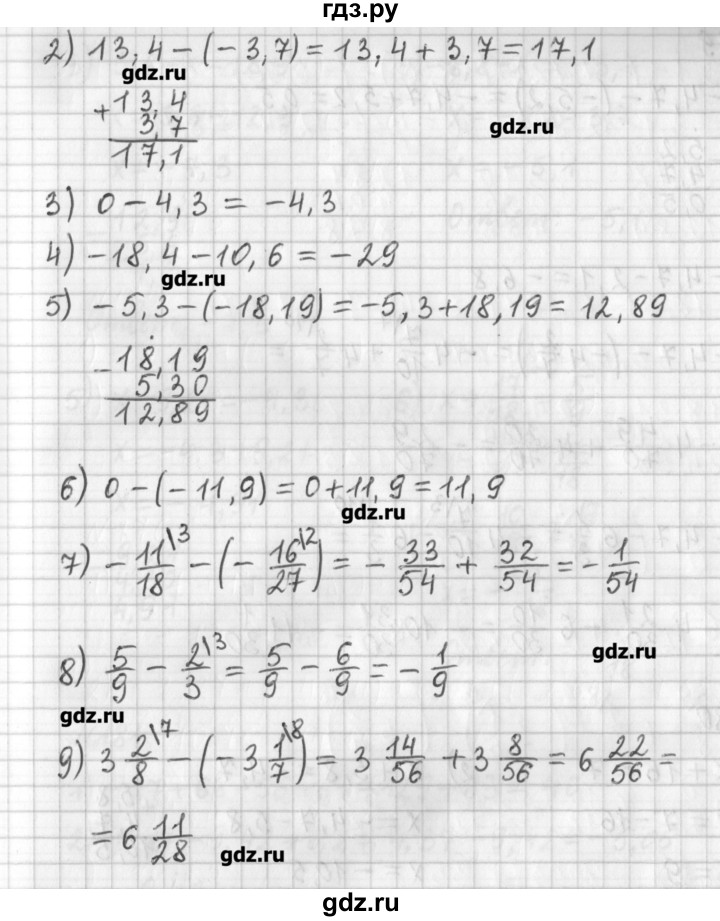 гдз.ру
2) 13,4 - (-3,7) = 13,4 + 3,7 = 17,1
gdz.ru
+13,4
3,7
gdz.ru
17,1
3) 0 - 4,3 = -4,3
4) -18,4 - 10,6 = -29
gdz.ru
5) -5,3 - (-18,19) = -5,3 + 18,19 = 12,89
-18,19
5,30
12,89
6) 0 - (-11,9) = 0 + 11,9 = 11,9
gdz.ru
7) - 11/18 \3 - (- 16/27 \2) = - 33/54 + 32/54 = - 1/54
gdz.ru
8) 5/9 - 2/3 \3 = 5/9 - 6/9 = - 1/9
gdz.ru
9) 3 2/8 \7 - (-3 1/7 \8) = 3 14/56 + 3 8/56 = 6 22/56 =
= 6 11/28
gdz.ru
gdz.ru